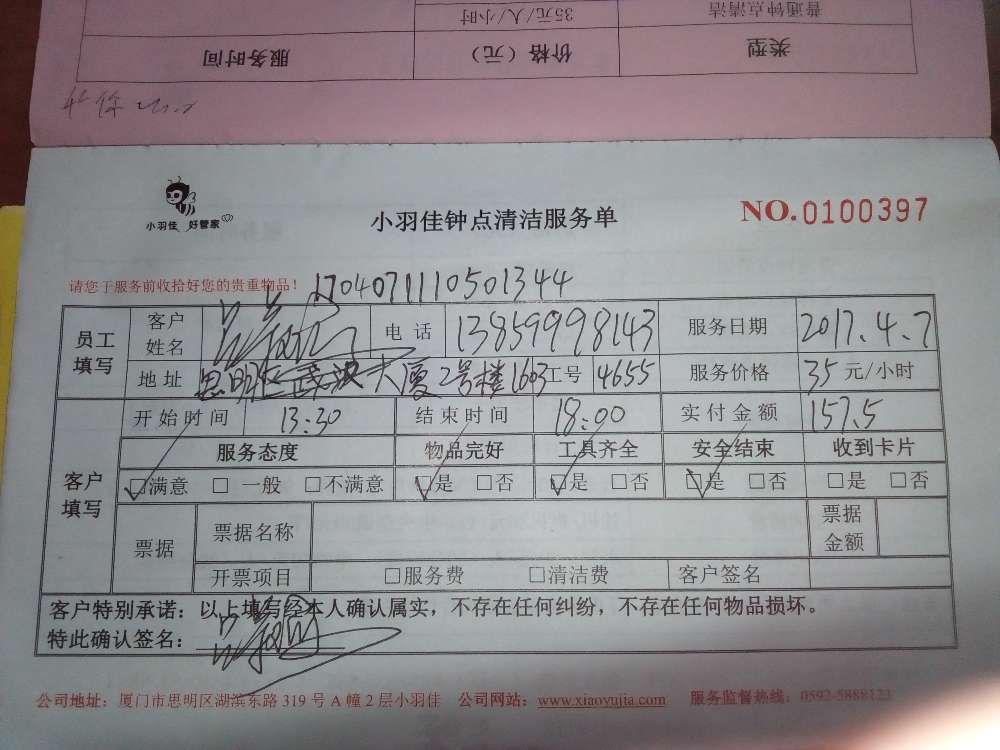 普通钟点清洁 35元/人/小时
类型 价格（元） 服务时间
小羽佳 好管家
小羽佳钟点清洁服务单
NO.0100397
请您于服务前收拾好您的贵重物品！ 1704071110501344
员工填写 客户姓名 电话 13859998143 服务日期 2017.4.7
地址 思明区武汉大厦2号楼1603 工号 4655 服务价格 35 元/小时
客户填写 开始时间 13:30 结束时间 18:00 实付金额 157.5
服务态度 物品完好 工具齐全 安全结束 收到卡片
☑满意 □一般 □不满意 ☑是 □否 ☑是 □否 ☑是 □否 □是 □否
票据 票据名称 票据金额
开票项目 □服务费 □清洁费 客户签名
客户特别承诺：以上填写经本人确认属实，不存在任何纠纷，不存在任何物品损坏。
特此确认签名：
公司地址：厦门市思明区湖滨东路319号A幢2层小羽佳 公司网站：www.xiaoyujia.com 服务监督热线：0592-5888123